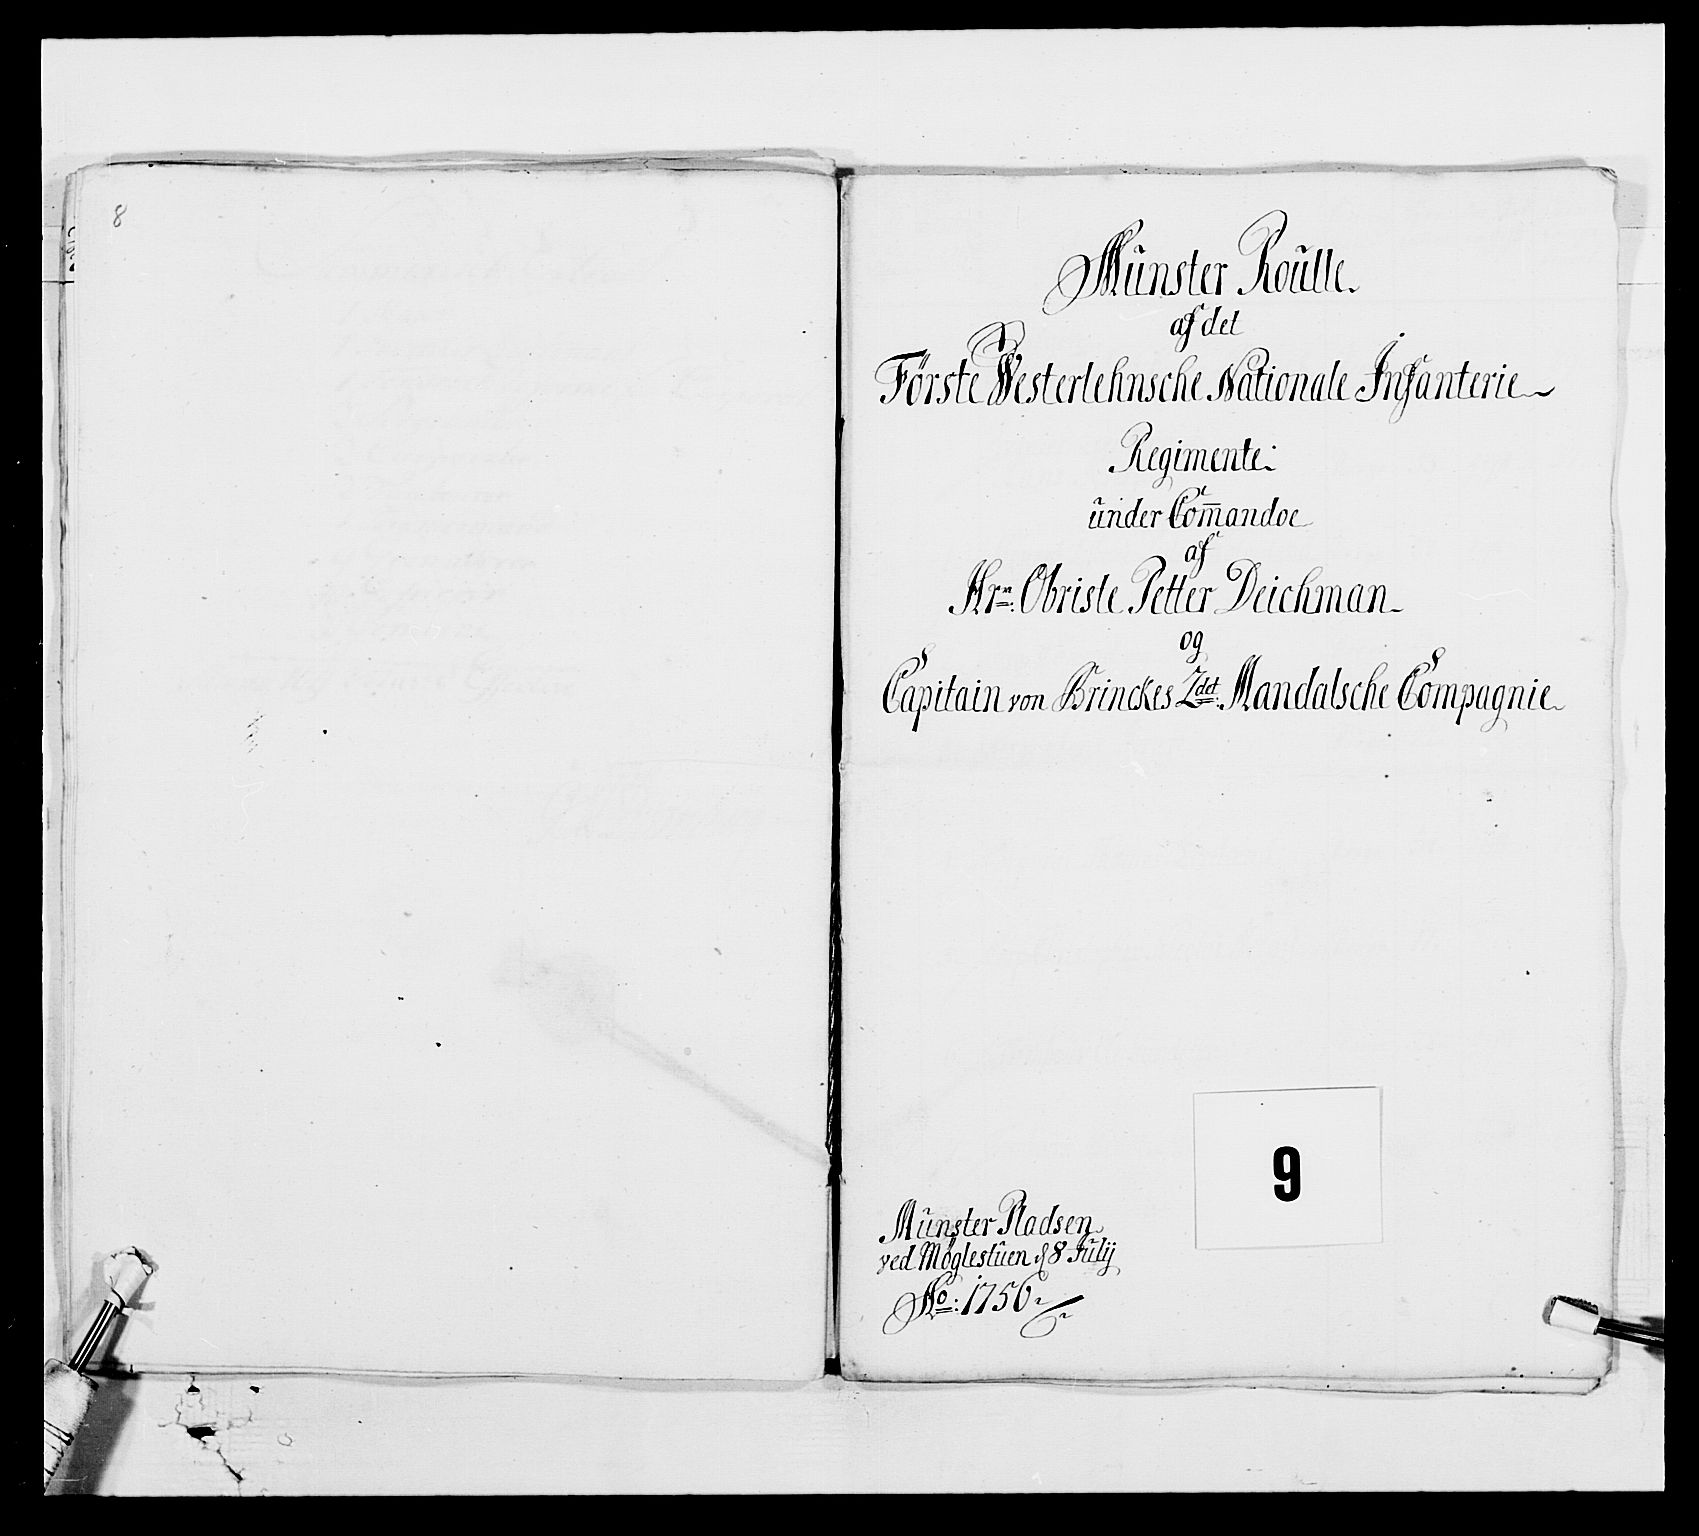 8
Münster Roülle
af det
Förste Westerlehnsche Nationale Infanterie
Regimente:
ünder Com̄andoe
af
Hrn: Obriste Petter Deichman
og
Capitain von Brinckes 2det: Mandalsche Compagnie
9
Münster Pladsen
ved Möglestüen d 8 Julij
Ao: 1756